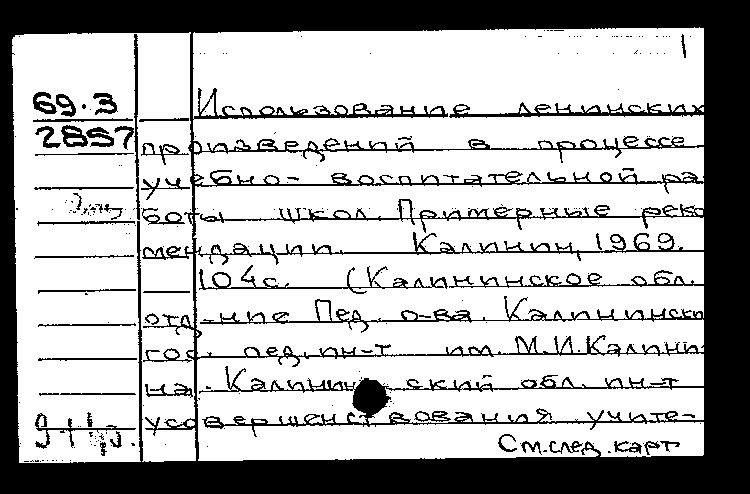 1
69.3
2897
Использование ленинских
произведений в процессе
учебно- воспитательной ра
боты школ. Примерные реко
мендации. Калинин, 1969.
104с. (Калининское обл.
отд-ние Пед. о-ва. Калининск
гос. пед. ин-т им. М.И.Калини
на. Калинин ский обл. ин-т
усовершенст вования учите-
См.след.карт